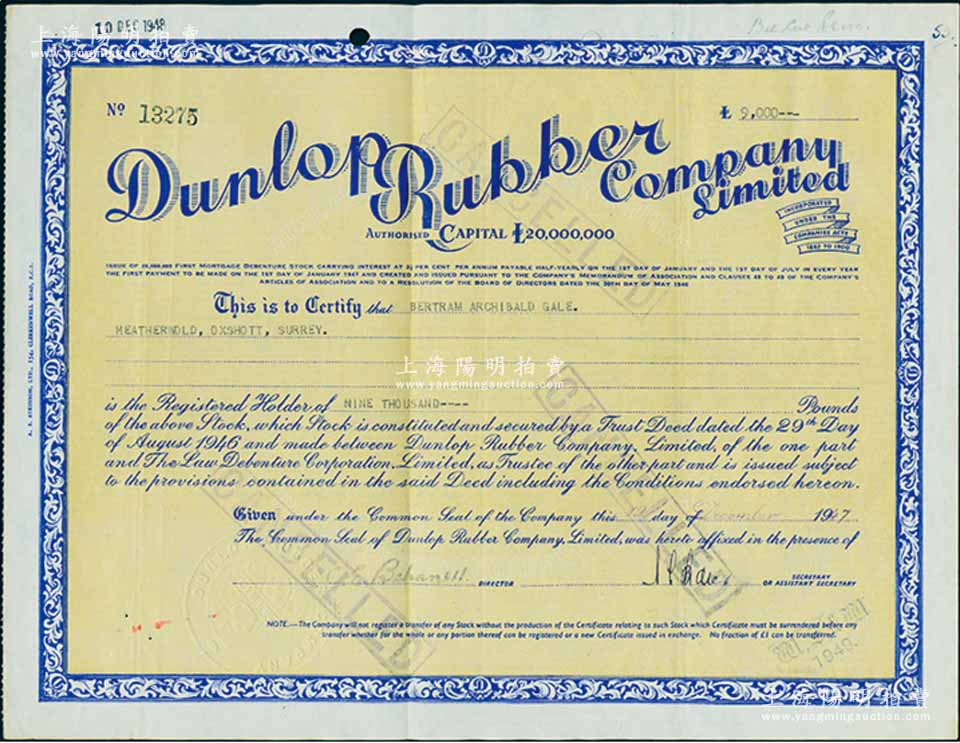 10 DEC 1948
上海陽明拍賣
www.yangmingauction.com
50.
Nº 13275
£ 9,000---
Dunlop Rubber Company Limited
INCORPORATED
UNDER THE
COMPANIES ACTS
1862 TO 1900
AUTHORISED CAPITAL £20,000,000
FIRST MORTGAGE DEBENTURE STOCK CARRYING INTEREST AT 3½ PER CENT PER ANNUM PAYABLE HALF-YEARLY ON THE 1ST DAY OF JANUARY AND THE 1ST DAY OF JULY IN EVERY YEAR
THE FIRST PAYMENT TO BE MADE ON THE 1ST DAY OF JANUARY 1947 AND CREATED AND ISSUED PURSUANT TO THE COMPANY'S MEMORANDUM OF ASSOCIATION AND CLAUSES 45 TO 49 OF THE COMPANY'S
ARTICLES OF ASSOCIATION AND TO A RESOLUTION OF THE BOARD OF DIRECTORS DATED THE 30TH DAY OF MAY 1946
This is to Certify that BERTRAM ARCHIBALD GALE.
HEATHERWOLD, OXSHOTT, SURREY.
上海陽明拍賣
www.yangmingauction.com
is the Registered Holder of NINE THOUSAND---- Pounds
of the above Stock, which Stock is constituted and secured by a Trust Deed dated the 29th Day
of August 1946 and made between Dunlop Rubber Company, Limited, of the one part
and The Law Debenture Corporation, Limited, as Trustee of the other part and is issued subject
to the provisions contained in the said Deed including the Conditions endorsed hereon.
Given under the Common Seal of the Company this day of December 1947
The Common Seal of Dunlop Rubber Company, Limited, was hereto affixed in the presence of
DIRECTOR
SECRETARY
OR ASSISTANT SECRETARY
NOTE.—The Company will not register a transfer of any Stock without the production of the Certificate relating to such Stock which Certificate must be surrendered before any
transfer whether for the whole or any portion thereof can be registered or a new Certificate issued in exchange. No fraction of £1 can be transferred.
CANCELLED
CANCELLED
CANCELLED
1949.
A. R. ATKINSON, LTD., 154, CLERKENWELL ROAD, E.C.1.
上海陽明拍賣
www.yangmingauction.com